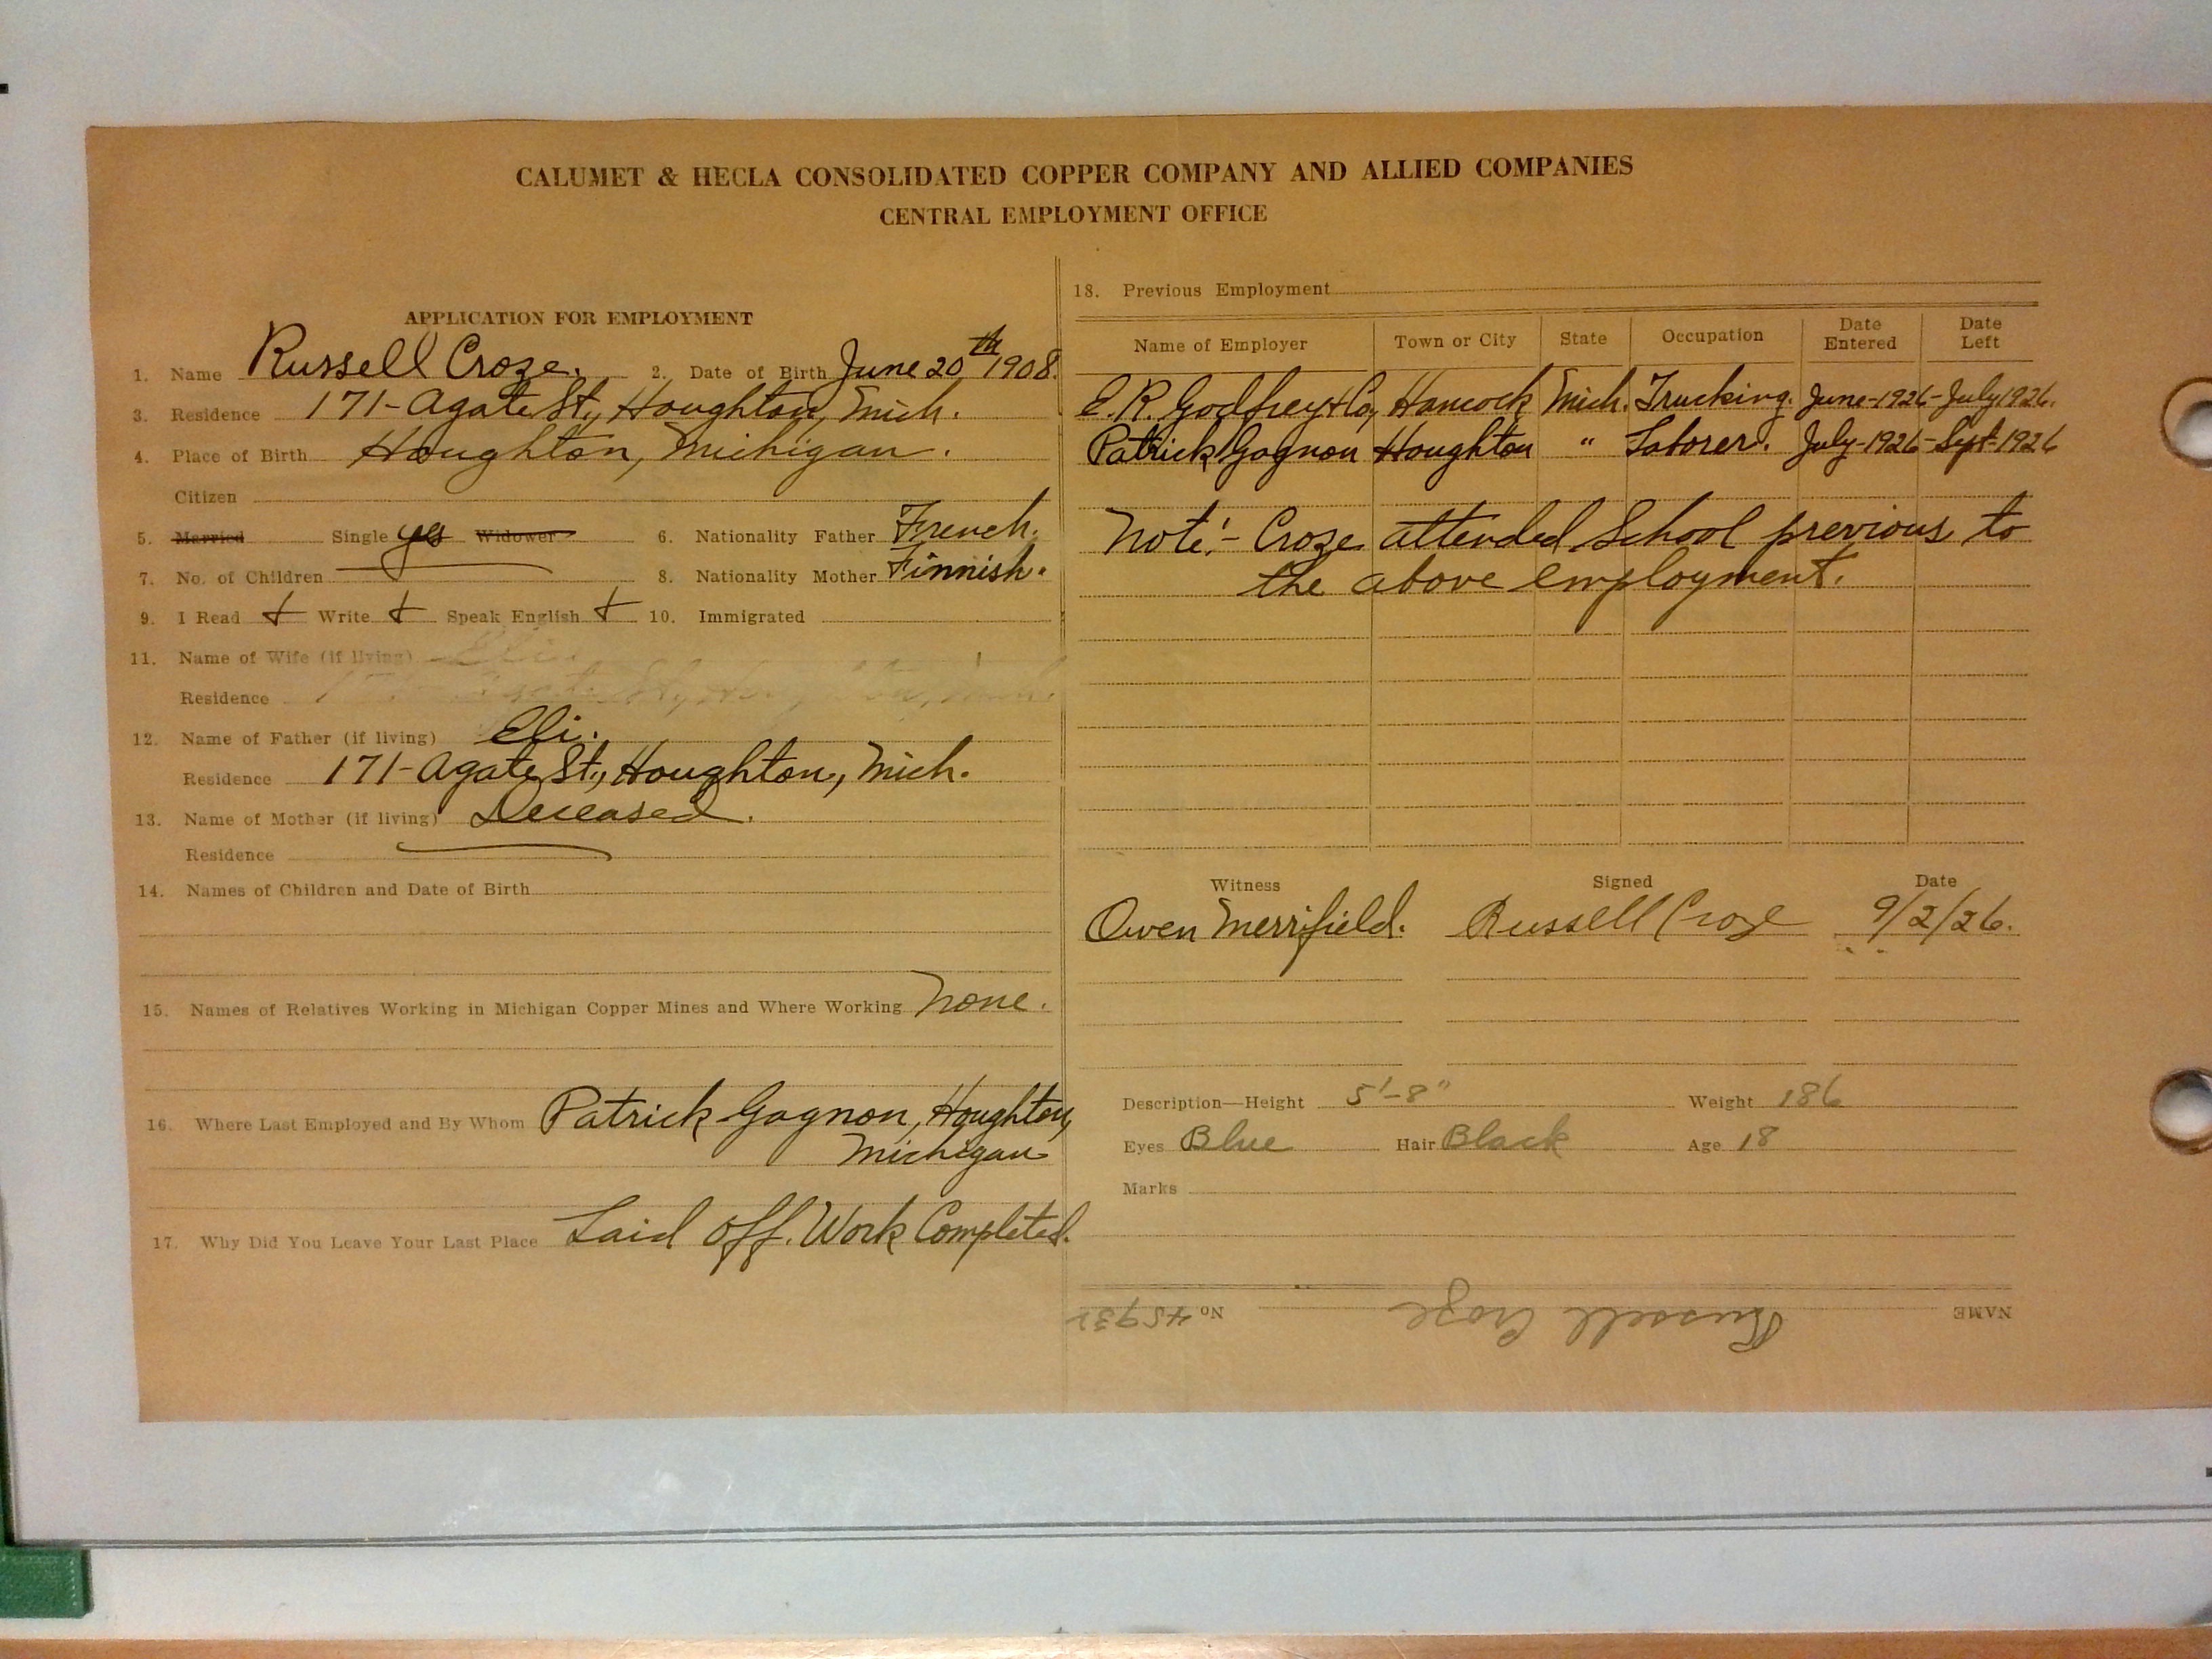 CALUMET & HECLA CONSOLIDATED COPPER COMPANY AND ALLIED COMPANIES
CENTRAL EMPLOYMENT OFFICE
APPLICATION FOR EMPLOYMENT
1. Name Russell Croze. 2. Date of Birth June 20th 1908.
3. Residence 171-Agate St., Houghton, Mich.
4. Place of Birth Houghton, Michigan.
Citizen
5. Married Single yes Widower 6. Nationality Father French.
7. No. of Children 8. Nationality Mother Finnish.
9. I Read + Write + Speak English + 10. Immigrated
11. Name of Wife (if living) Eli.
Residence Agate St., Houghton, Mich.
12. Name of Father (if living) Eli.
Residence 171-Agate St., Houghton, Mich.
13. Name of Mother (if living) Deceased.
Residence
14. Names of Children and Date of Birth
15. Names of Relatives Working in Michigan Copper Mines and Where Working None.
16. Where Last Employed and By Whom Patrick Gagnon, Houghton,
Michigan
17. Why Did You Leave Your Last Place Laid off. Work Completed.
18. Previous Employment
Name of Employer Town or City State Occupation Date Entered Date Left
E. R. Godfrey + Co, Hancock Mich. Trucking. June-1926-July 1926.
Patrick Gagnon Houghton " Laborer. July-1926-Sept-1926
Note:- Croze attended School previous to
the above employment.
Witness Signed Date
Owen Merrifield. Russell Croze 9/2/26.
Description—Height 5'-8" Weight 186
Eyes Blue Hair Black Age 18
Marks
NAME Russell Croze No.